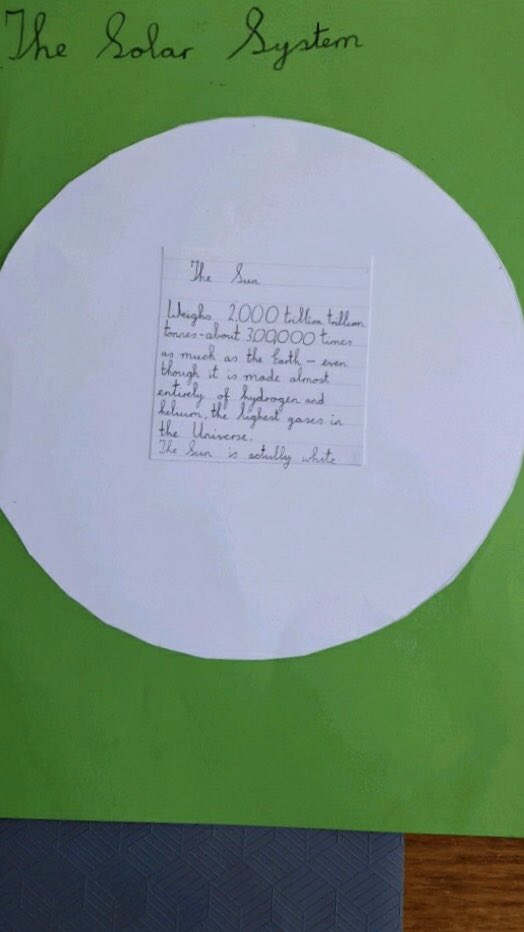 The Solar System
The Sun
Weighs 2,000 trillion trillion
tonnes - about 300,000 times
as much as the Earth - even
though it is made almost
entirely of hydrogen and
helium, the lighest gases in
the Universe.
The Sun is actully white